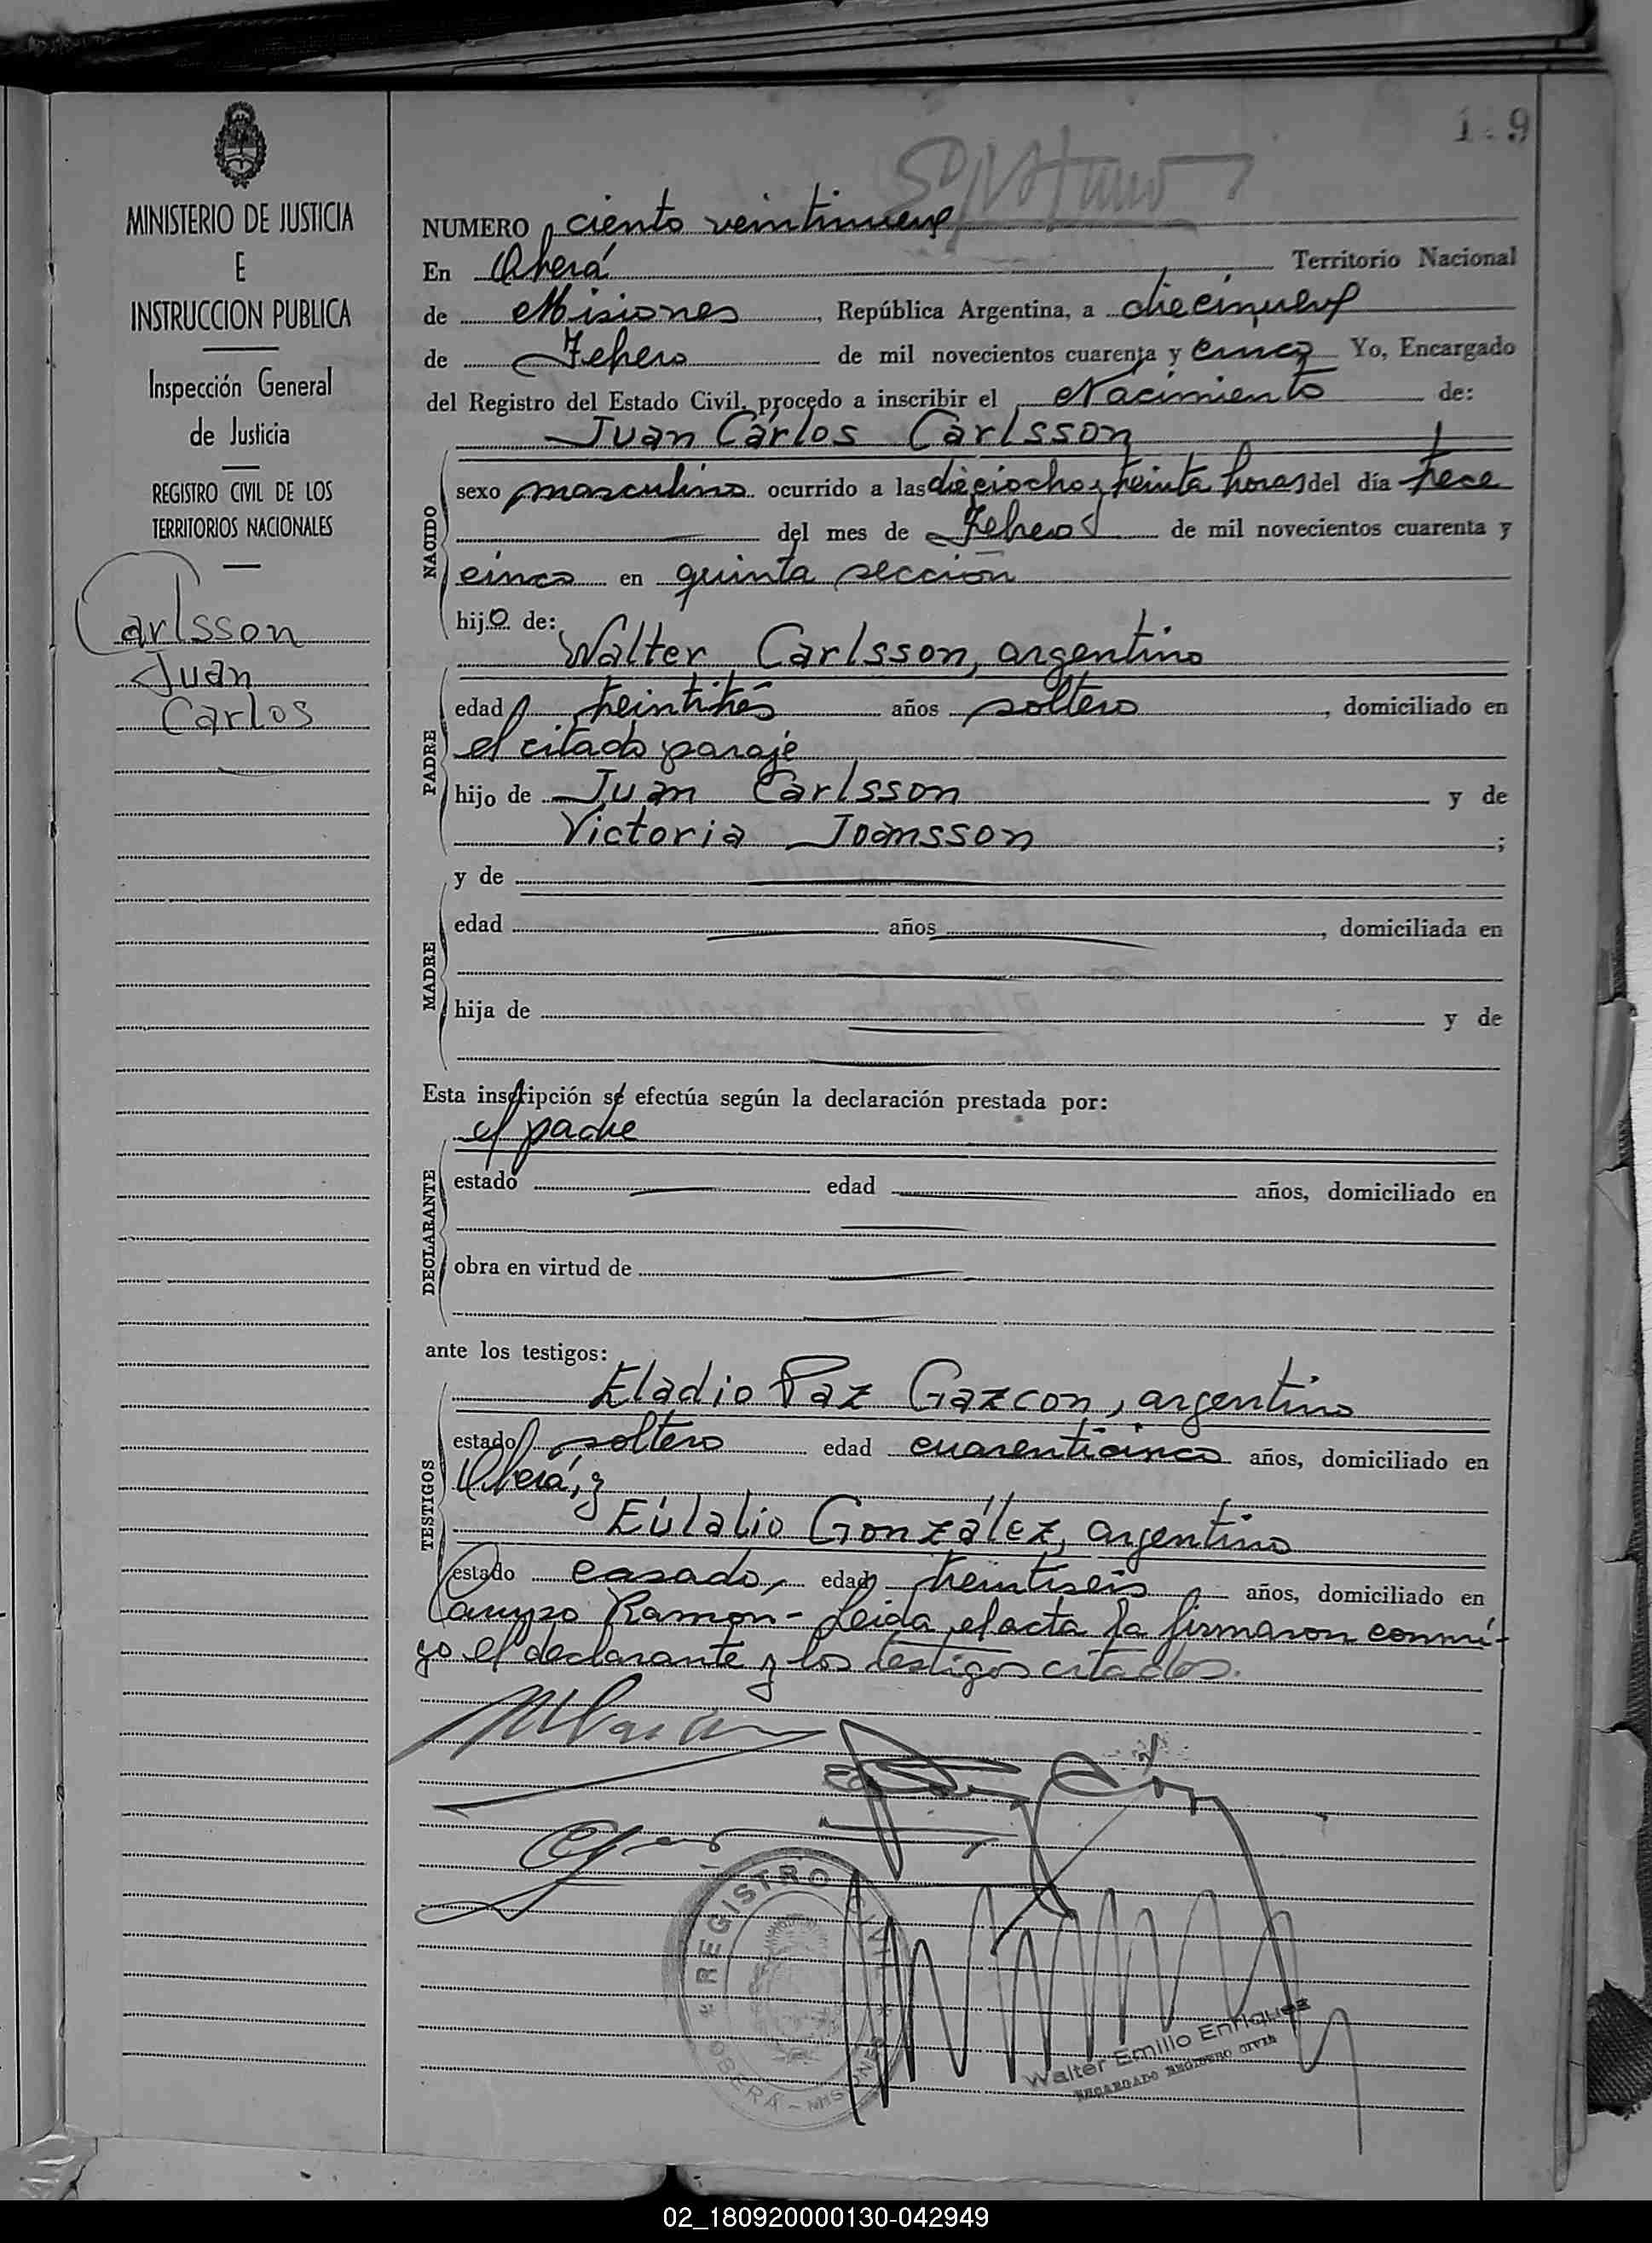 1 9
MINISTERIO DE JUSTICIA
E
INSTRUCCION PUBLICA
Inspección General
de Justicia
REGISTRO CIVIL DE LOS
TERRITORIOS NACIONALES
Carlsson
Juan
Carlos
NUMERO ciento veintinueve
En Oberá Territorio Nacional
de Misiones, República Argentina, a diecinueve
de Febrero de mil novecientos cuarenta y cinco Yo, Encargado
del Registro del Estado Civil, procedo a inscribir el Nacimiento de:
Juan Carlos Carlsson
NACIDO
sexo masculino ocurrido a las dieciocho y treinta horas del día trece
del mes de Febrero de mil novecientos cuarenta y
cinco en quinta sección
hijo de:
Walter Carlsson, argentino
PADRE
edad treintitrés años soltero, domiciliado en
el citado paraje
hijo de Juan Carlsson y de
Victoria Joansson;
MADRE
y de
edad años, domiciliada en
hija de y de
Esta inscripción se efectúa según la declaración prestada por:
el padre
DECLARANTE
estado edad años, domiciliado en
obra en virtud de
ante los testigos:
TESTIGOS
Eladio Paz Gazcon, argentino
estado soltero edad cuarenticinco años, domiciliado en
Oberá, y
Eulalio González, argentino
estado casado, edad treintiseis años, domiciliado en
Campo Ramón - Leida el acta la firmaron conmi-
go el declarante y los testigos citados.
REGISTRO CIVIL
OBERÁ - MISIONES
Walter Emilio Enriquez
ENCARGADO REGISTRO CIVIL
02_180920000130-042949